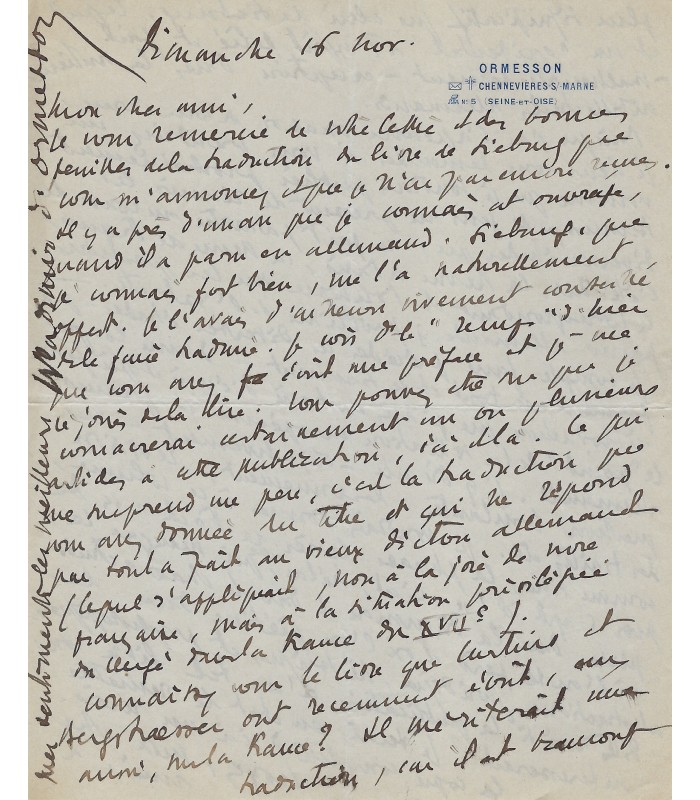 Dimanche 16 nov.
ORMESSON
CHENNEVIÈRES S/ MARNE
N° 5 (SEINE-ET-OISE)
Mon cher ami,
Je vous remercie de votre lettre et des bonnes
feuilles de la traduction du livre de Sieburg que
vous m'annoncez et que je n'ai pas encore reçues.
Il y a près d'un an que je connais cet ouvrage,
quand il a paru en allemand. Sieburg, que
je connais fort bien, me l'a naturellement
offert. Je l'avais d'ailleurs vivement conseillé
de le faire traduire. Je vois ds le "Temps" d'hier
que vous avez écrit une préface et je me
réjouis de la lire. Vous pouvez être sûr que je
consacrerai certainement un ou plusieurs
articles à cette publication, ici et là. Ce qui
me surprend un peu, c'est la traduction que
vous avez donnée du titre et qui ne répond
pas tout à fait au vieux dicton allemand
(lequel s'appliquait, non à la joie de vivre
française, mais à la situation privilégiée
du clergé dans la France du XVIIe).
Connaissez vous le livre que Curtius et
Bergstraesser ont récemment écrit, eux
aussi, sur la France? Il mériterait une
traduction, car il est vraiment
mes sentiments les meilleurs Wladimir d'Ormesson